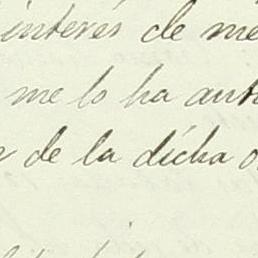 interés de me
me lo ha auto
de la dicha